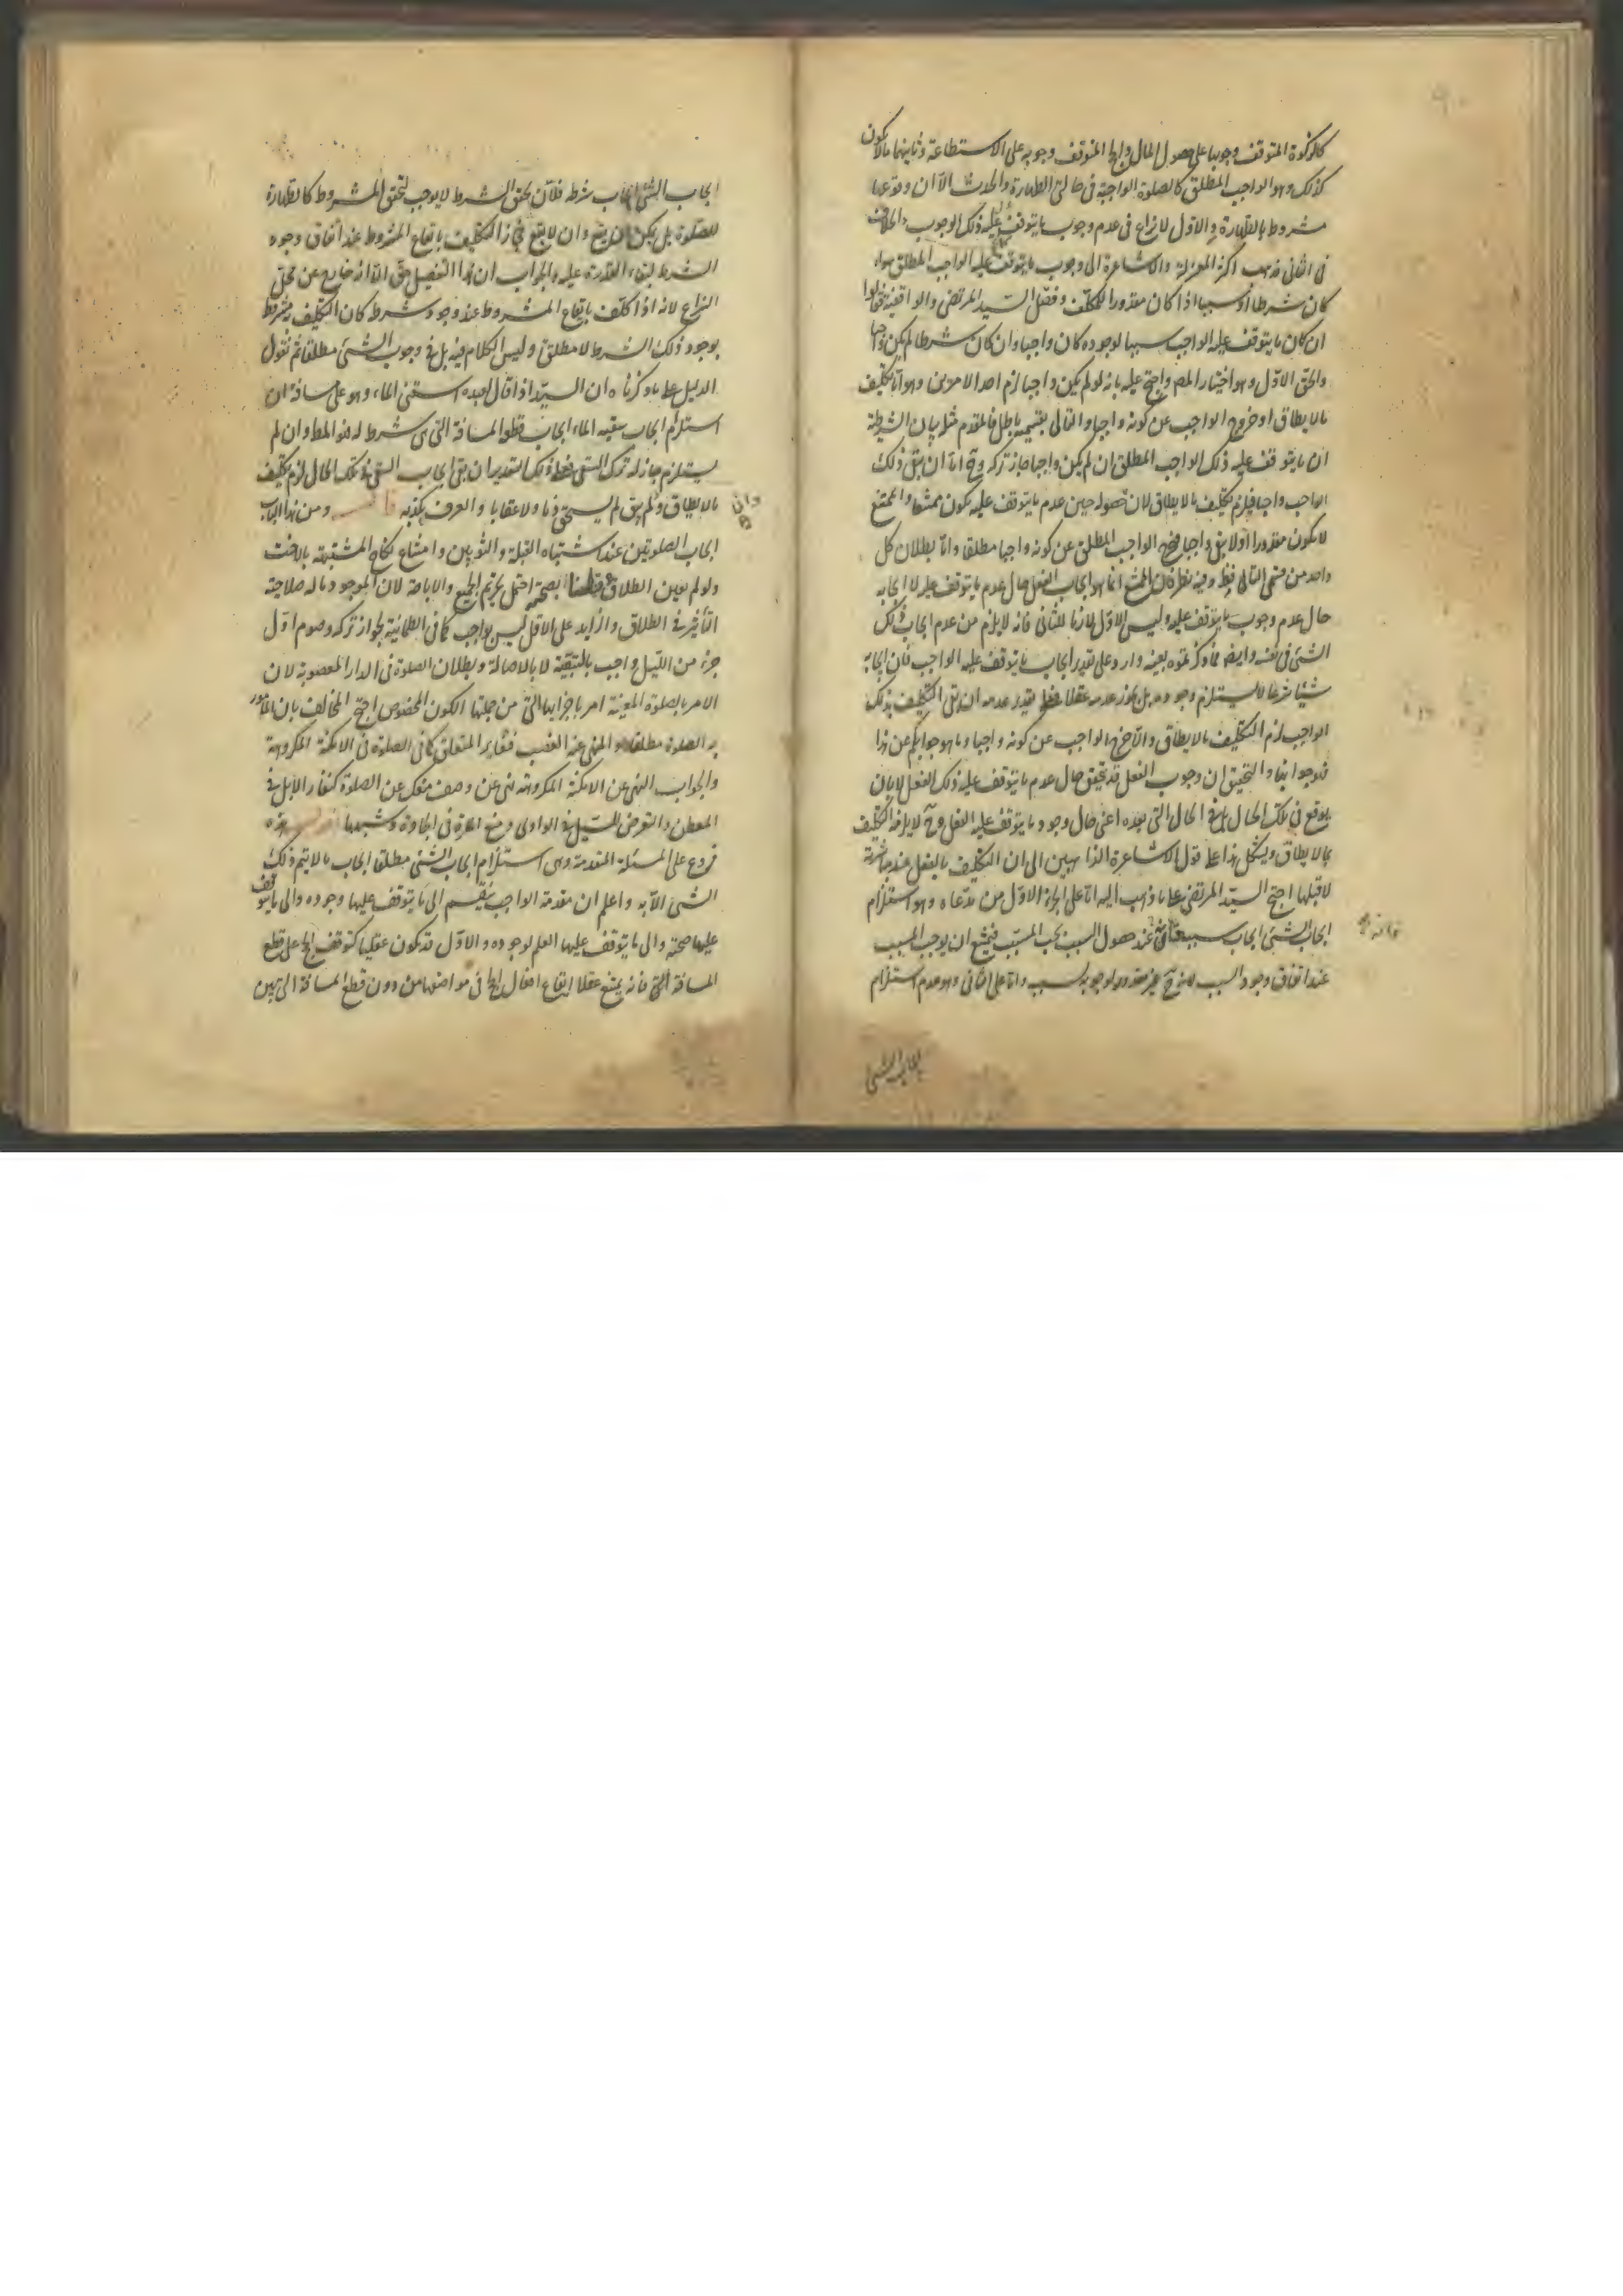 كالزكوة المتوقف وجوبها على حصول المال والحج المتوقف وجوبه على الاستطاعة وثانيهما ما لا يكون
كذلك وهو الواجب المطلق كالصلوة الواجبة في حالتي الطهارة والحدث الا ان وقوعها
مشروط بالطهارة والاول لا نزاع في عدم وجوب ما يتوقف عليه ذلك الوجوب والخلاف
في الثاني فذهب اكثر المعتزلة والاشاعرة الى وجوب ما يتوقف عليه الواجب المطلق سواء
كان شرطا او سببا اذا كان مقدورا للمكلف وفصل السيد المرتضى والواقفية فقالوا
ان كان ما يتوقف عليه الواجب سببا لوجوده كان واجبا وان كان شرطا لم يكن واجبا
والحق الاول وهو اختيار المص واحتج عليه بانه لو لم يكن واجبا لزم احد الامرين وهو اما تكليف
ما لا يطاق او خروج الواجب عن كونه واجبا والتالي بقسميه باطل فالمقدم مثله بيان الشرطية
ان ما يتوقف عليه ذلك الواجب المطلق ان لم يكن واجبا جاز تركه وح اما ان يبقى ذلك
الواجب واجبا فيلزم تكليف ما لا يطاق لان حصوله حين عدم ما يتوقف عليه يكون ممتنعا والممتنع
لا يكون مقدورا او لا يبقى واجبا فيخرج الواجب المطلق عن كونه واجبا مطلقا واما بطلان كل
واحد من قسمي التالي فظ وفيه نظر فان الممتنع انما هو ايجاب الفعل حال عدم ما يتوقف عليه لا ايجابه
حال عدم وجوب ما يتوقف عليه وليس الاول لازما للثاني فانه لا يلزم من عدم ايجاب ذلك
الشئ في نفسه وايض فما ذكرتموه بعينه وارد على تقدير ايجاب ما يتوقف عليه الواجب فان ايجابه
شيئا شرعا لا يستلزم وجوده بل يجوز عدمه عقلا فعلى تقدير عدمه ان بقى التكليف بذلك
الواجب لزم التكليف ما لا يطاق والا خرج الواجب عن كونه واجبا وما هو جوابكم عن هذا
فهو جوابنا والتحقيق ان وجوب الفعل قد تحقق حال عدم ما يتوقف عليه ذلك الفعل لا بان
يوقع في تلك الحال بل في الحال التي بعده اعنى حال وجود ما يتوقف عليه الفعل وح لا يلزم التكليف
بما لا يطاق ويشكل هذا على قول الاشاعرة الذاهبين الى ان التكليف بالفعل عند مباشرته
لا قبلها احتج السيد المرتضى على ما ذهب اليه اما على الجزء الاول من مدعاه وهو استلزام
ايجاب الشئ ايجاب سببه عند حصول السبب يجب المسبب فيمتنع ان يوجب المسبب
عند اتفاق وجود السبب غير مقدور لوجوبه بسببه واما على الثاني وهو عدم استلزام
ايجاب الشئ
ايجاب الشئ ايجاب شرطه فلان تحقق الشرط لا يوجب تحقق المشروط كالطهارة
للصلوة بل يمكن ان يقع وان لا يقع فجاز التكليف بايقاع المشروط عند اتفاق وجود
الشرط لبقاء القدرة عليه والجواب ان هذا التفصيل حق الا انه خارج عن محل
النزاع لانه اذا كلف بايقاع المشروط عند وجود شرطه كان التكليف مشروطا
بوجود ذلك الشرط لا مطلق وليس الكلام فيه بل في وجوب الشئ مطلقا ثم نقول
الدليل على ما ذكرناه ان السيد اذا قال لعبده اسقني الماء وهو على مسافة ان
استلزم ايجاب سقيه الماء ايجاب قطع المسافة التي هي شرط له فهو المط وان لم
يستلزم جاز له ترك الشئ فعلى ذلك التقدير ان بقى ايجاب السقى في تلك الحال لزم تكليف
ما لا يطاق وان لم يبق لم يستحق ذما ولا عقابا والعرف يكذبه ومن هذا الباب
ايجاب الصلوتين عند اشتباه القبلة والثوبين وامتناع نكاح المشتبهة بالاخت
ولو لم يعين الطلاق احتمل تحريم الجميع والاباحة لان الموجود ما له صلاحية
التأثير في الطلاق والزايد على الاقل ليس بواجب كما في الطمانينة لجواز تركه وصوم اول
جزء من الليل واجب بالتبعية لا بالاصالة وبطلان الصلوة في الدار المغصوبة لان
الامر بالصلوة المعينة امر باجزائها التي من جملتها الكون المخصوص احتج المخالف بان المأمور
به الصلوة مطلقا والمنهي عنه الغصب فتغاير المتعلق كما في الصلوة في الامكنة المكروهة
والجواب النهي عن الامكنة المكروهة نهى عن وصف منفك عن الصلوة كنفار الابل في
المعطن والتعرض للسيل في الوادي ومنع المارة في الجادة وشبهها هذه
فروع على المسئلة المتقدمة وهي استلزام ايجاب الشئ مطلقا ايجاب ما لا يتم ذلك
الشئ الا به واعلم ان مقدمة الواجب ينقسم الى ما يتوقف عليها وجوده والى ما يتوقف
عليها صحته والى ما يتوقف عليها العلم لوجوده والاول قد يكون عقليا كتوقف الحج على قطع
المسافة فانه يمتنع عقلا ايقاع افعال الحج في مواضعها من دون قطع المسافة الى تيين